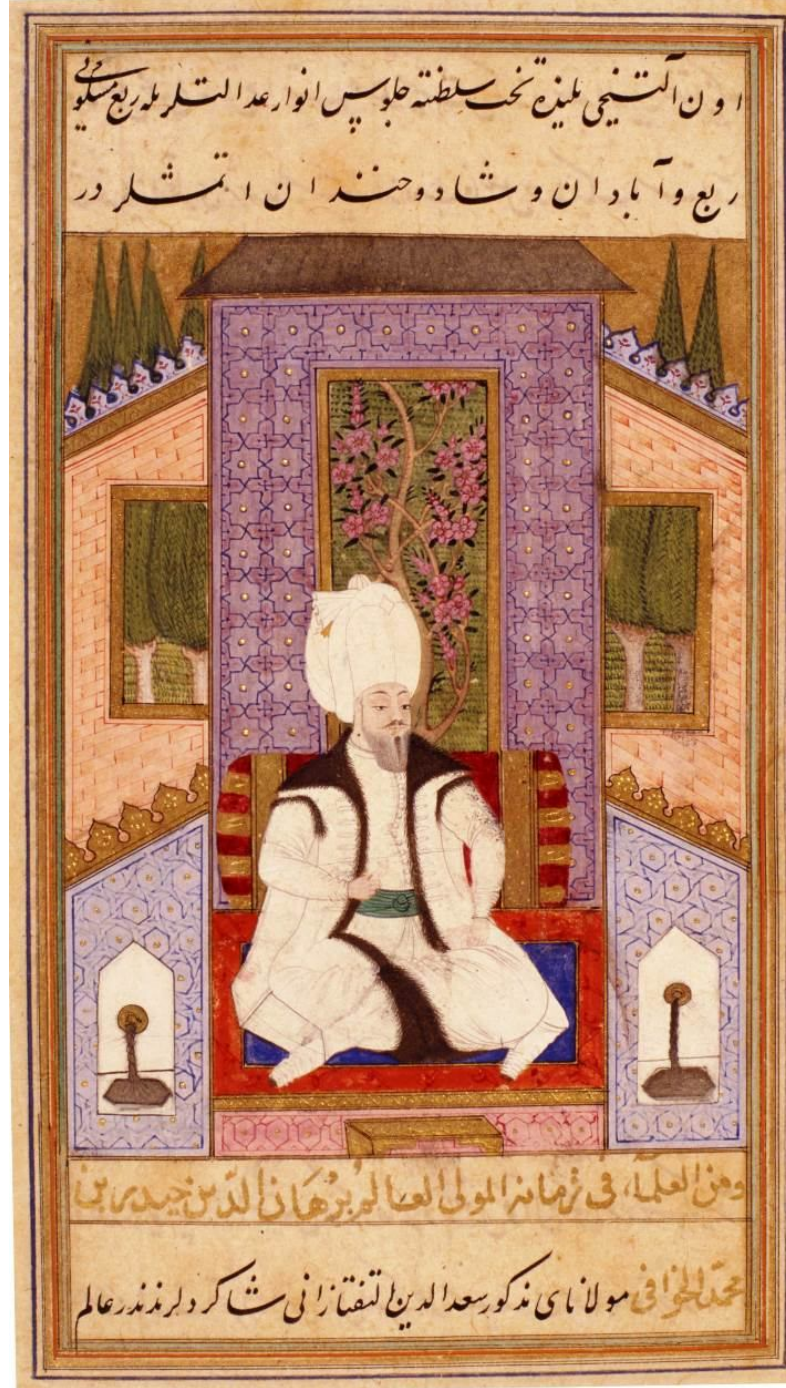 اون التنجی یلنده تخت سلطنته جلوس انوار عدالتلریله ربع مسکونی
ربع و آبادان و شاد و خندان اتمشلر در
ومن العلماء فی زمانه المولی العالم برهان الدین حیدر بن
محمد الخوافی مولانای مذکور سعد الدین التفتازانی شاکردلرندندر عالم